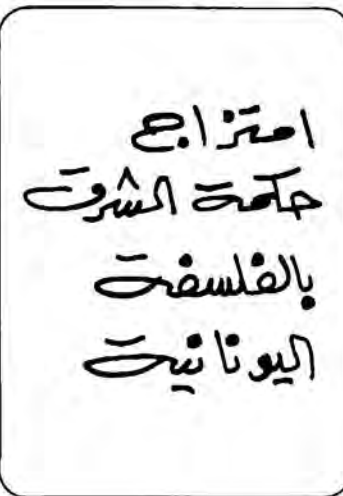 امتزاج
حكمة الشرق
بالفلسفة
اليونانية